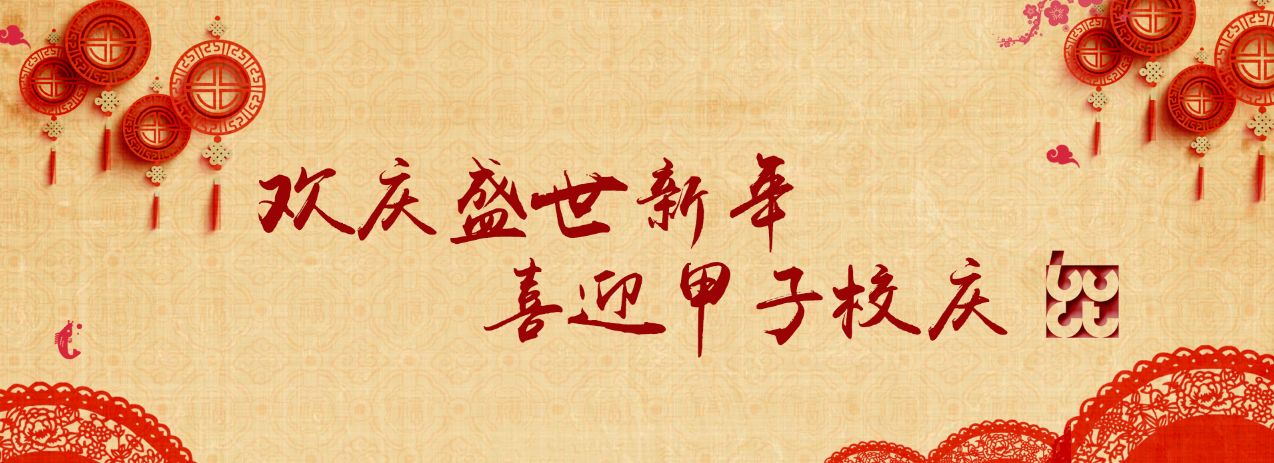 欢庆盛世新年
喜迎甲子校庆